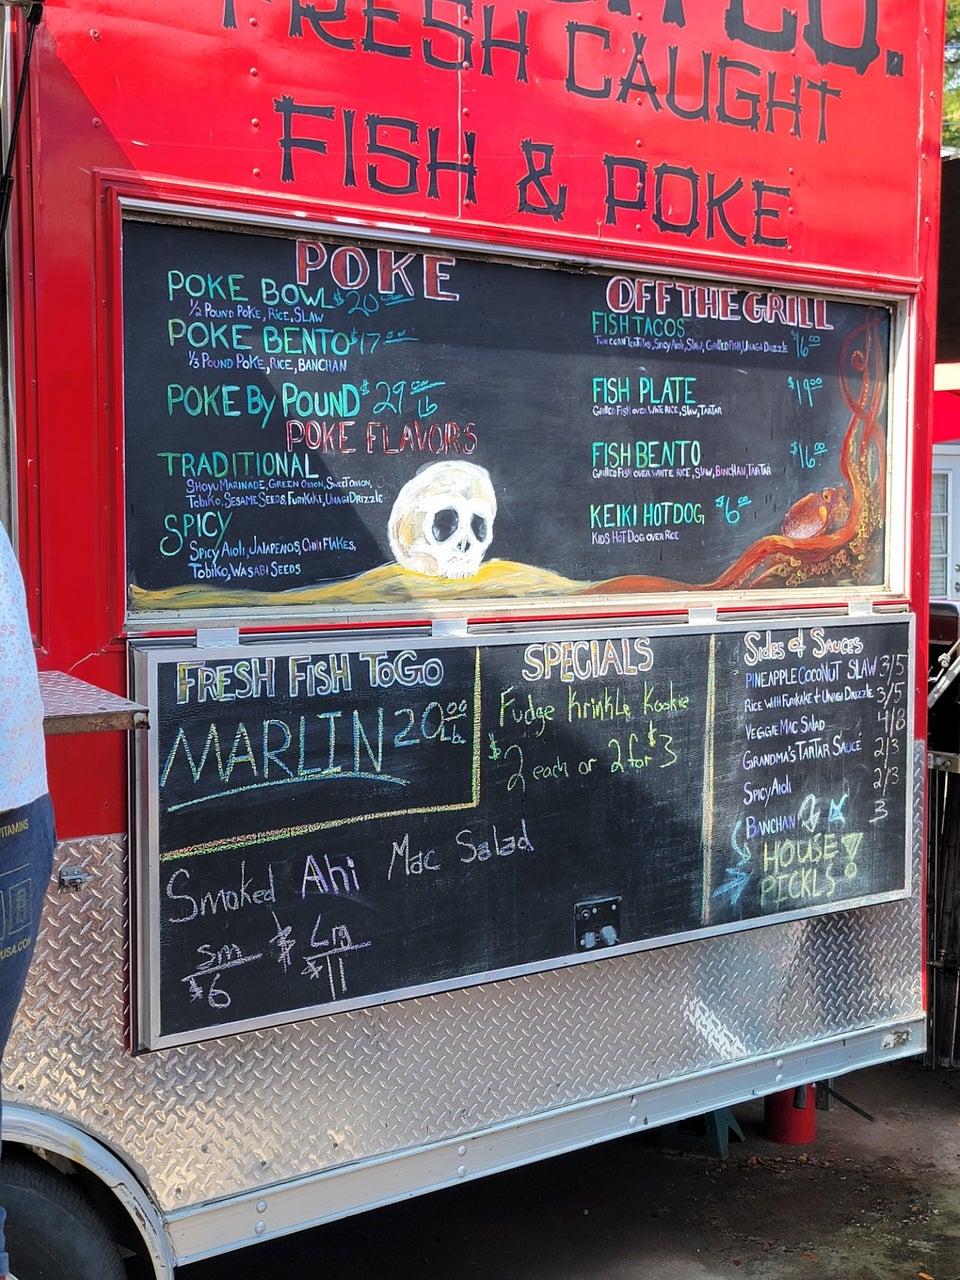 CO.
FRESH CAUGHT
FISH & POKE
POKE
POKE BOWL $20
1/2 POUND POKE, RICE, SLAW
POKE BENTO $17
1/3 POUND POKE, RICE, BANCHAN
POKE By POUND $29 lb
POKE FLAVORS
TRADITIONAL
SHOYU MARINADE, GREEN ONION, SWEET ONION,
TOBIKO, SESAME SEEDS, FURIKAKE, UNAGI DRIZZLE
SPICY
SPICY AIOLI, JALAPENOS, CHILI FLAKES,
TOBIKO, WASABI SEEDS
OFF THE GRILL
FISH TACOS $16.00
TWO CORN TORTILLAS, SPICY AIOLI, SLAW, GRILLED FISH, UNAGI DRIZZLE
FISH PLATE $19.00
GRILLED FISH OVER WHITE RICE, SLAW, TARTAR
FISH BENTO $16.00
GRILLED FISH OVER WHITE RICE, SLAW, BANCHAN, TARTAR
KEIKI HOT DOG $6.00
KIDS HOT DOG OVER RICE
FRESH FISH ToGo
MARLIN 20.00 Lb.
Smoked Ahi Mac Salad
sm $ Lg
$6 $11
SPECIALS
Fudge Krinkle Kookie
$2 each or 2 for $3
Sides & Sauces
PINEAPPLE COCONUT SLAW 3/5
RICE WITH FURIKAKE + UNAGI DRIZZLE 3/5
VEGGIE MAC SALAD 4/8
GRANDMA'S TARTAR SAUCE 2/3
SPICY AIOLI 2/3
BANCHAN 3
HOUSE
PICKLS!
VITAMINS
USA.COM